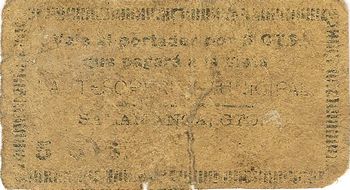 Vale al portador por 5 CTS.
que pagará a la vista
LA TESORERIA MUNICIPAL
SALAMANCA, GTO.
5